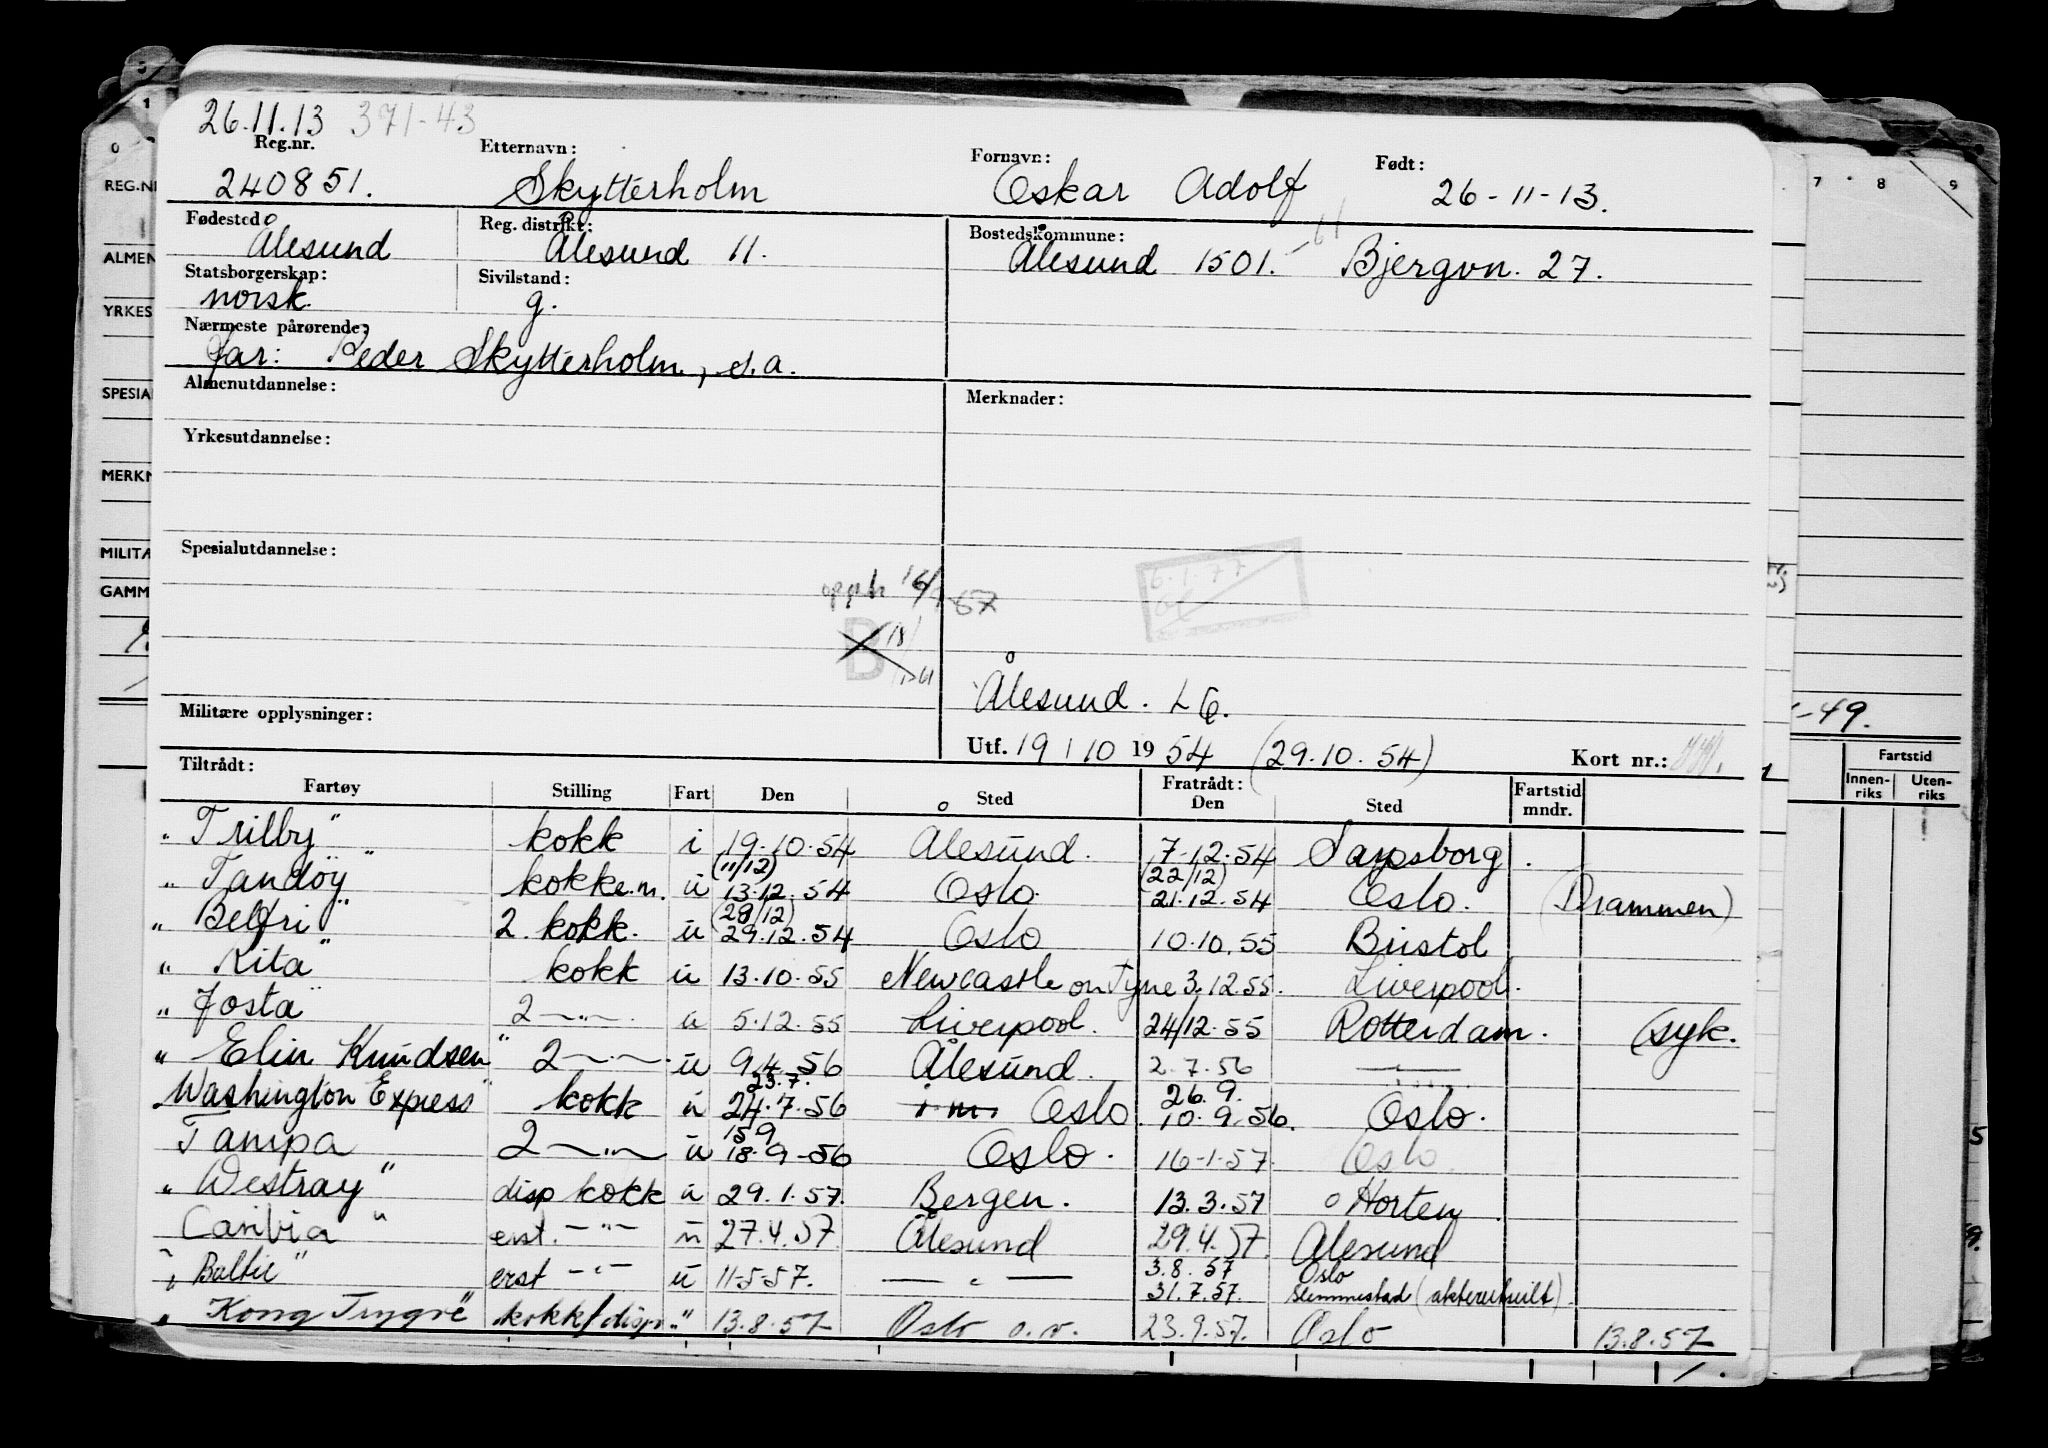 26.11.13 371-43
Reg.nr. Etternavn: Fornavn: Født:
240851. Skytterholm Oskar Adolf 26-11-13.
Fødested Reg. distrikt: Bostedskommune:
Ålesund Ålesund 11. Ålesund 1501. -61 Bjergvn. 27.
Statsborgerskap: Sivilstand:
norsk. g.
Nærmeste pårørende:
far: Peder Skytterholm, s.a.
Almenutdannelse: Merknader:
Yrkesutdannelse:
Spesialutdannelse:
6.1.77
B
Ålesund. L
Militære opplysninger:
Utf. 19/10 1954 (29.10.54) Kort nr.:
Tiltrådt: Fratrådt:
Fartøy Stilling Fart Den Sted Den Sted Fartstid mndr.
"Trilby" kokk i 19.10.54 Ålesund. 7.12.54 Sarpsborg.
(11/12) (22/12)
"Tandøy" kokk e.m. u 13.12.54 Oslo. 21.12.54 Oslo. (Drammen)
(28/12)
"Belfri" 2. kokk. u 29.12.54 Oslo 10.10.55 Bristol
"Rita" kokk u 13.10.55 Newcastle on Tyne 3.12.55. Liverpool.
"Josta" 2 —"—. u 5.12.55 Liverpool. 24/12.55 Rotterdam. (syk.
"Elin Knudsen" 2 —"—. u 9.4.56 Ålesund. 2.7.56 —"—
23.7. 26.9.
"Washington Express" kokk u 24.7.56 Oslo 10.9.56. Oslo.
15.9
Tampa 2 —"— u 18.9-56 Oslo. 16-1-57. Oslo.
"Westray" disp kokk u 29.1.57. Bergen. 13.3.57 Horten
Caribia " erst. —"— u 27.4.57. Ålesund 29.4.57. Ålesund
3.8.57 Oslo
"Baltic" erst —"— u 11-5-57. —"— 31.7.57. Slemmestad (akterutseilt).
"Kong Trygve" kokk/disp. " 13.8.57 Oslo o.v. 23.9.57. Oslo 13.8.57
REG.NR
ALMEN
YRKES
SPESIAL
MERKN
MILITÆ
GAMM
7 8 9
-49.
Fartstid
Innen-riks Uten-riks